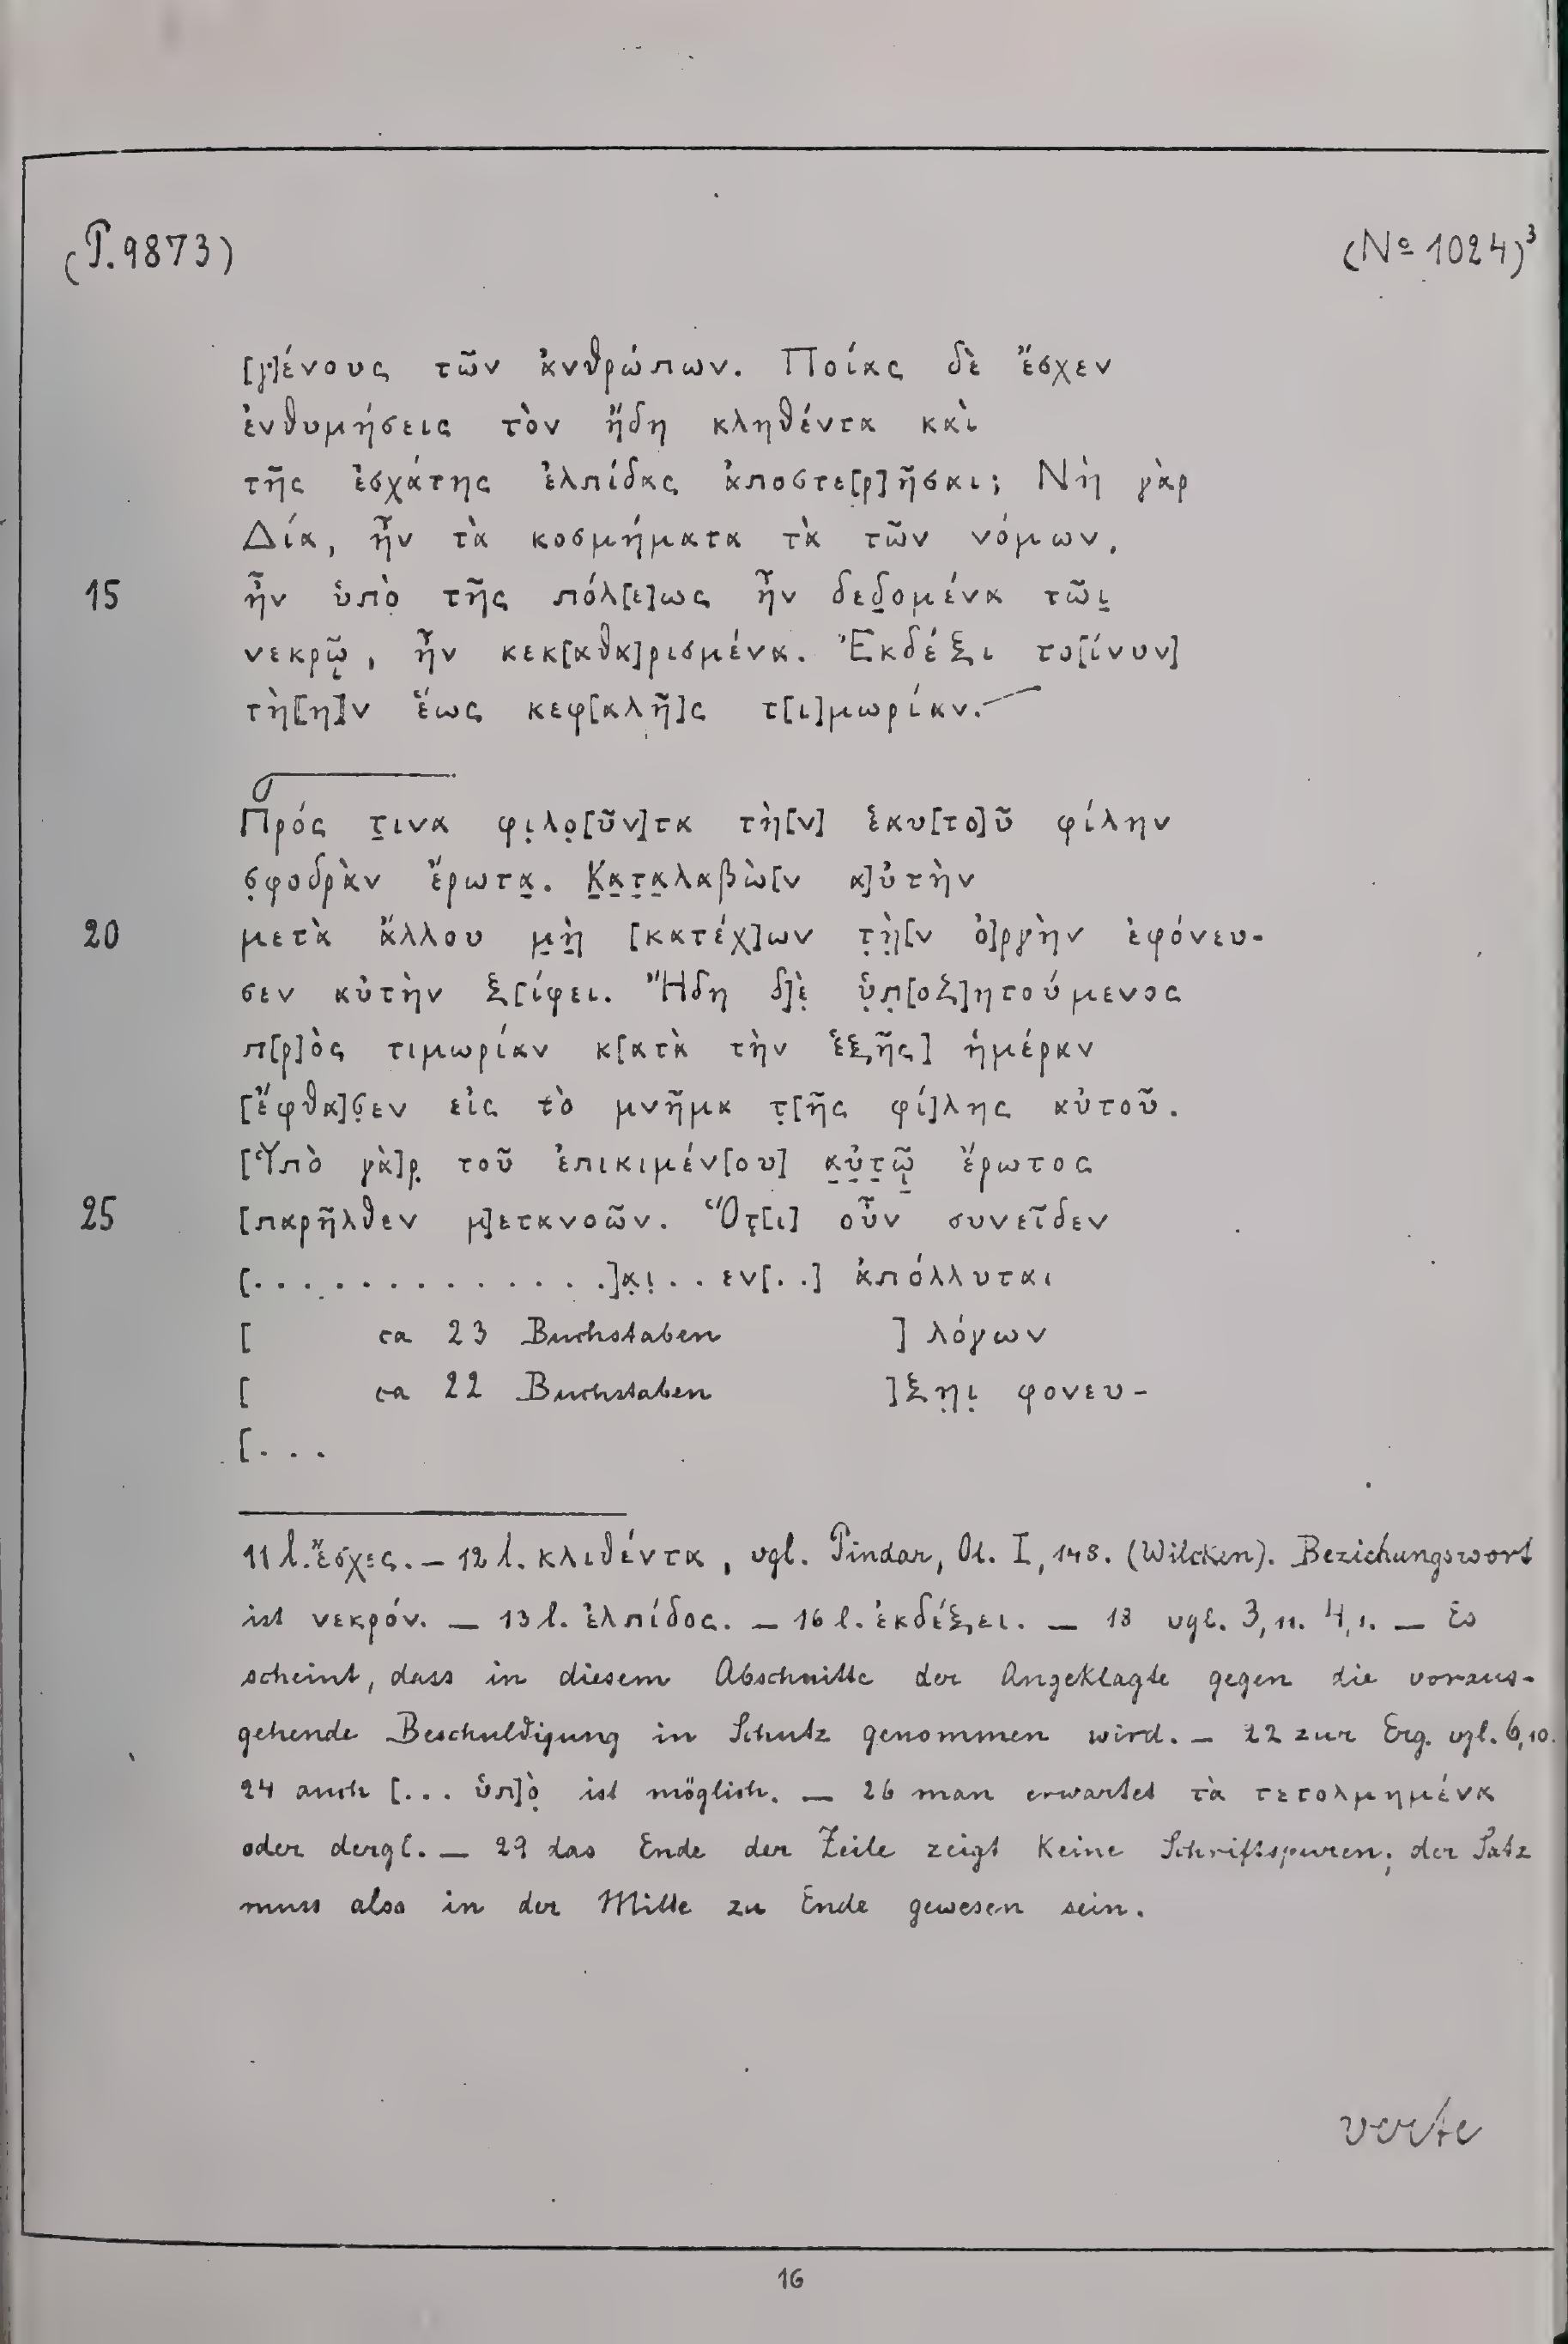 (P. 9873)
(No 1024)3
[γ]ένους τῶν ἀνθρώπων. Ποίας δὲ ἔσχεν
ἐνθυμήσεις τὸν ἤδη κληθέντα καὶ
τῆς ἐσχάτης ἐλπίδας ἀποστε[ρ]ῆσαι; Νὴ γὰρ
Δία, ἦν τὰ κοσμήματα τὰ τῶν νόμων,
15 ἦν ὑπὸ̣ τῆς πόλ[ε]ως ἦν δεδ̣ομένα τῶι̣
νεκρῷ̣, ἦν κεκ[αθα]ρισμένα. Ἐκδέξι το[ίνυν]
τὴ[η]ν ἕως κεφ[αλῆ]ς τ[ι]μωρίαν.
Πρός τ̣ινα φι̣λο̣[ῦν]τα τὴ[ν] ἑαυ[το]ῦ φίλην
σ̣φοδρὰν ἔρωτα̣. Κ̣α̣τ̣α̣λαβὼ[ν α]ὐτὴν
20 μετὰ ἄλλου μ̣ὴ̣ [κατέχ]ων τ̣ὴ̣[ν ὀ]ργὴν ἐφόνευ-
σεν αὐτὴν ξ[ίφει. Ἤδη δ]ὲ̣ ὑ̣π̣[οζ]ητούμενος
π[ρ]ὸς τιμωρίαν κ[ατὰ τὴν ἑξῆς] ἡμέραν
[ἔφθα]σ̣εν εἰς τὸ μνῆμα τ̣[ῆς φί]λης αὐτοῦ.
[Ὑπὸ γὰ]ρ̣ τοῦ ἐπικιμέν[ου] α̣ὐ̣τ̣ῷ̣ ἔρωτος
25 [παρῆλθεν μ]ετανοῶν. Ὅτ̣[ι] οὖν συνεῖδεν
[. . . . . . . . . . . . . .]α̣ι̣ . . εν[. .] ἀπόλλυται
[ ca 23 Buchstaben ] λόγων
[ ca 22 Buchstaben ]ξη̣ι̣ φονευ-
[. . .
11 l. ἔσχες. — 12 l. κλιθέντα, vgl. Pindar, Ol. I, 148. (Wilcken). Beziehungswort
ist νεκρόν. — 13 l. ἐλπίδος. — 16 l. ἐκδέξει. — 18 vgl. 3, 11. 4, 1. — Es
scheint, dass in diesem Abschnitte der Angeklagte gegen die voraus-
gehende Beschuldigung in Schutz genommen wird. — 22 zur Erg. vgl. 6, 10.
24 auch [... ὑπ]ὸ̣ ist möglich. — 26 man erwartet τὰ τετολμημένα
oder dergl. — 29 das Ende der Zeile zeigt keine Schriftspuren; der Satz
muss also in der Mitte zu Ende gewesen sein.
verte
16